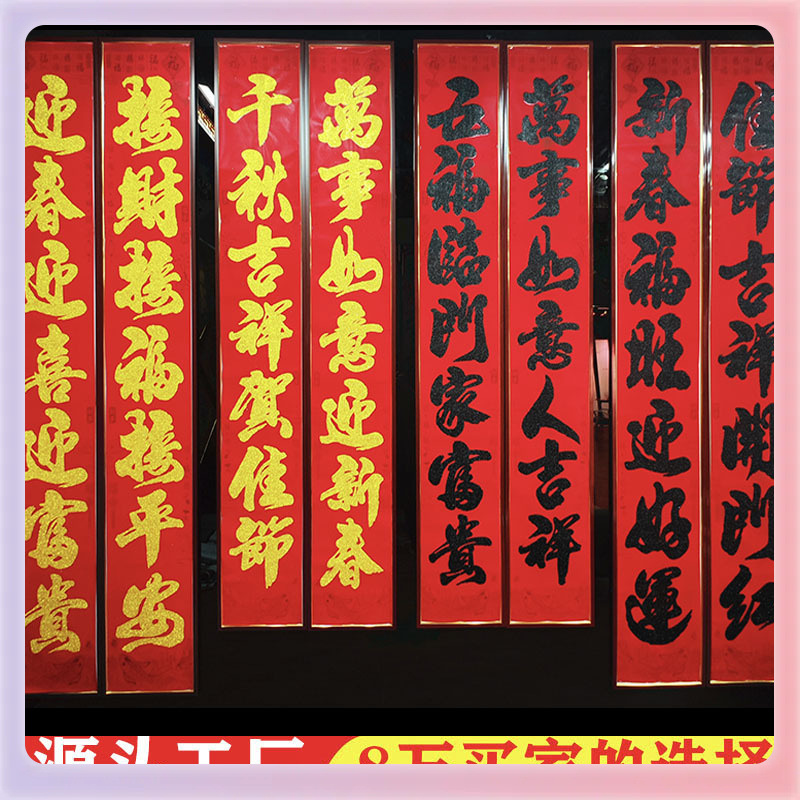 迎春迎喜迎富貴
接財接福接平安
千秋吉祥賀佳節
萬事如意迎新春
五福臨門家富貴
萬事如意人吉祥
新春福旺迎好運
佳節吉祥開門紅
源头工厂 8万买家的选择